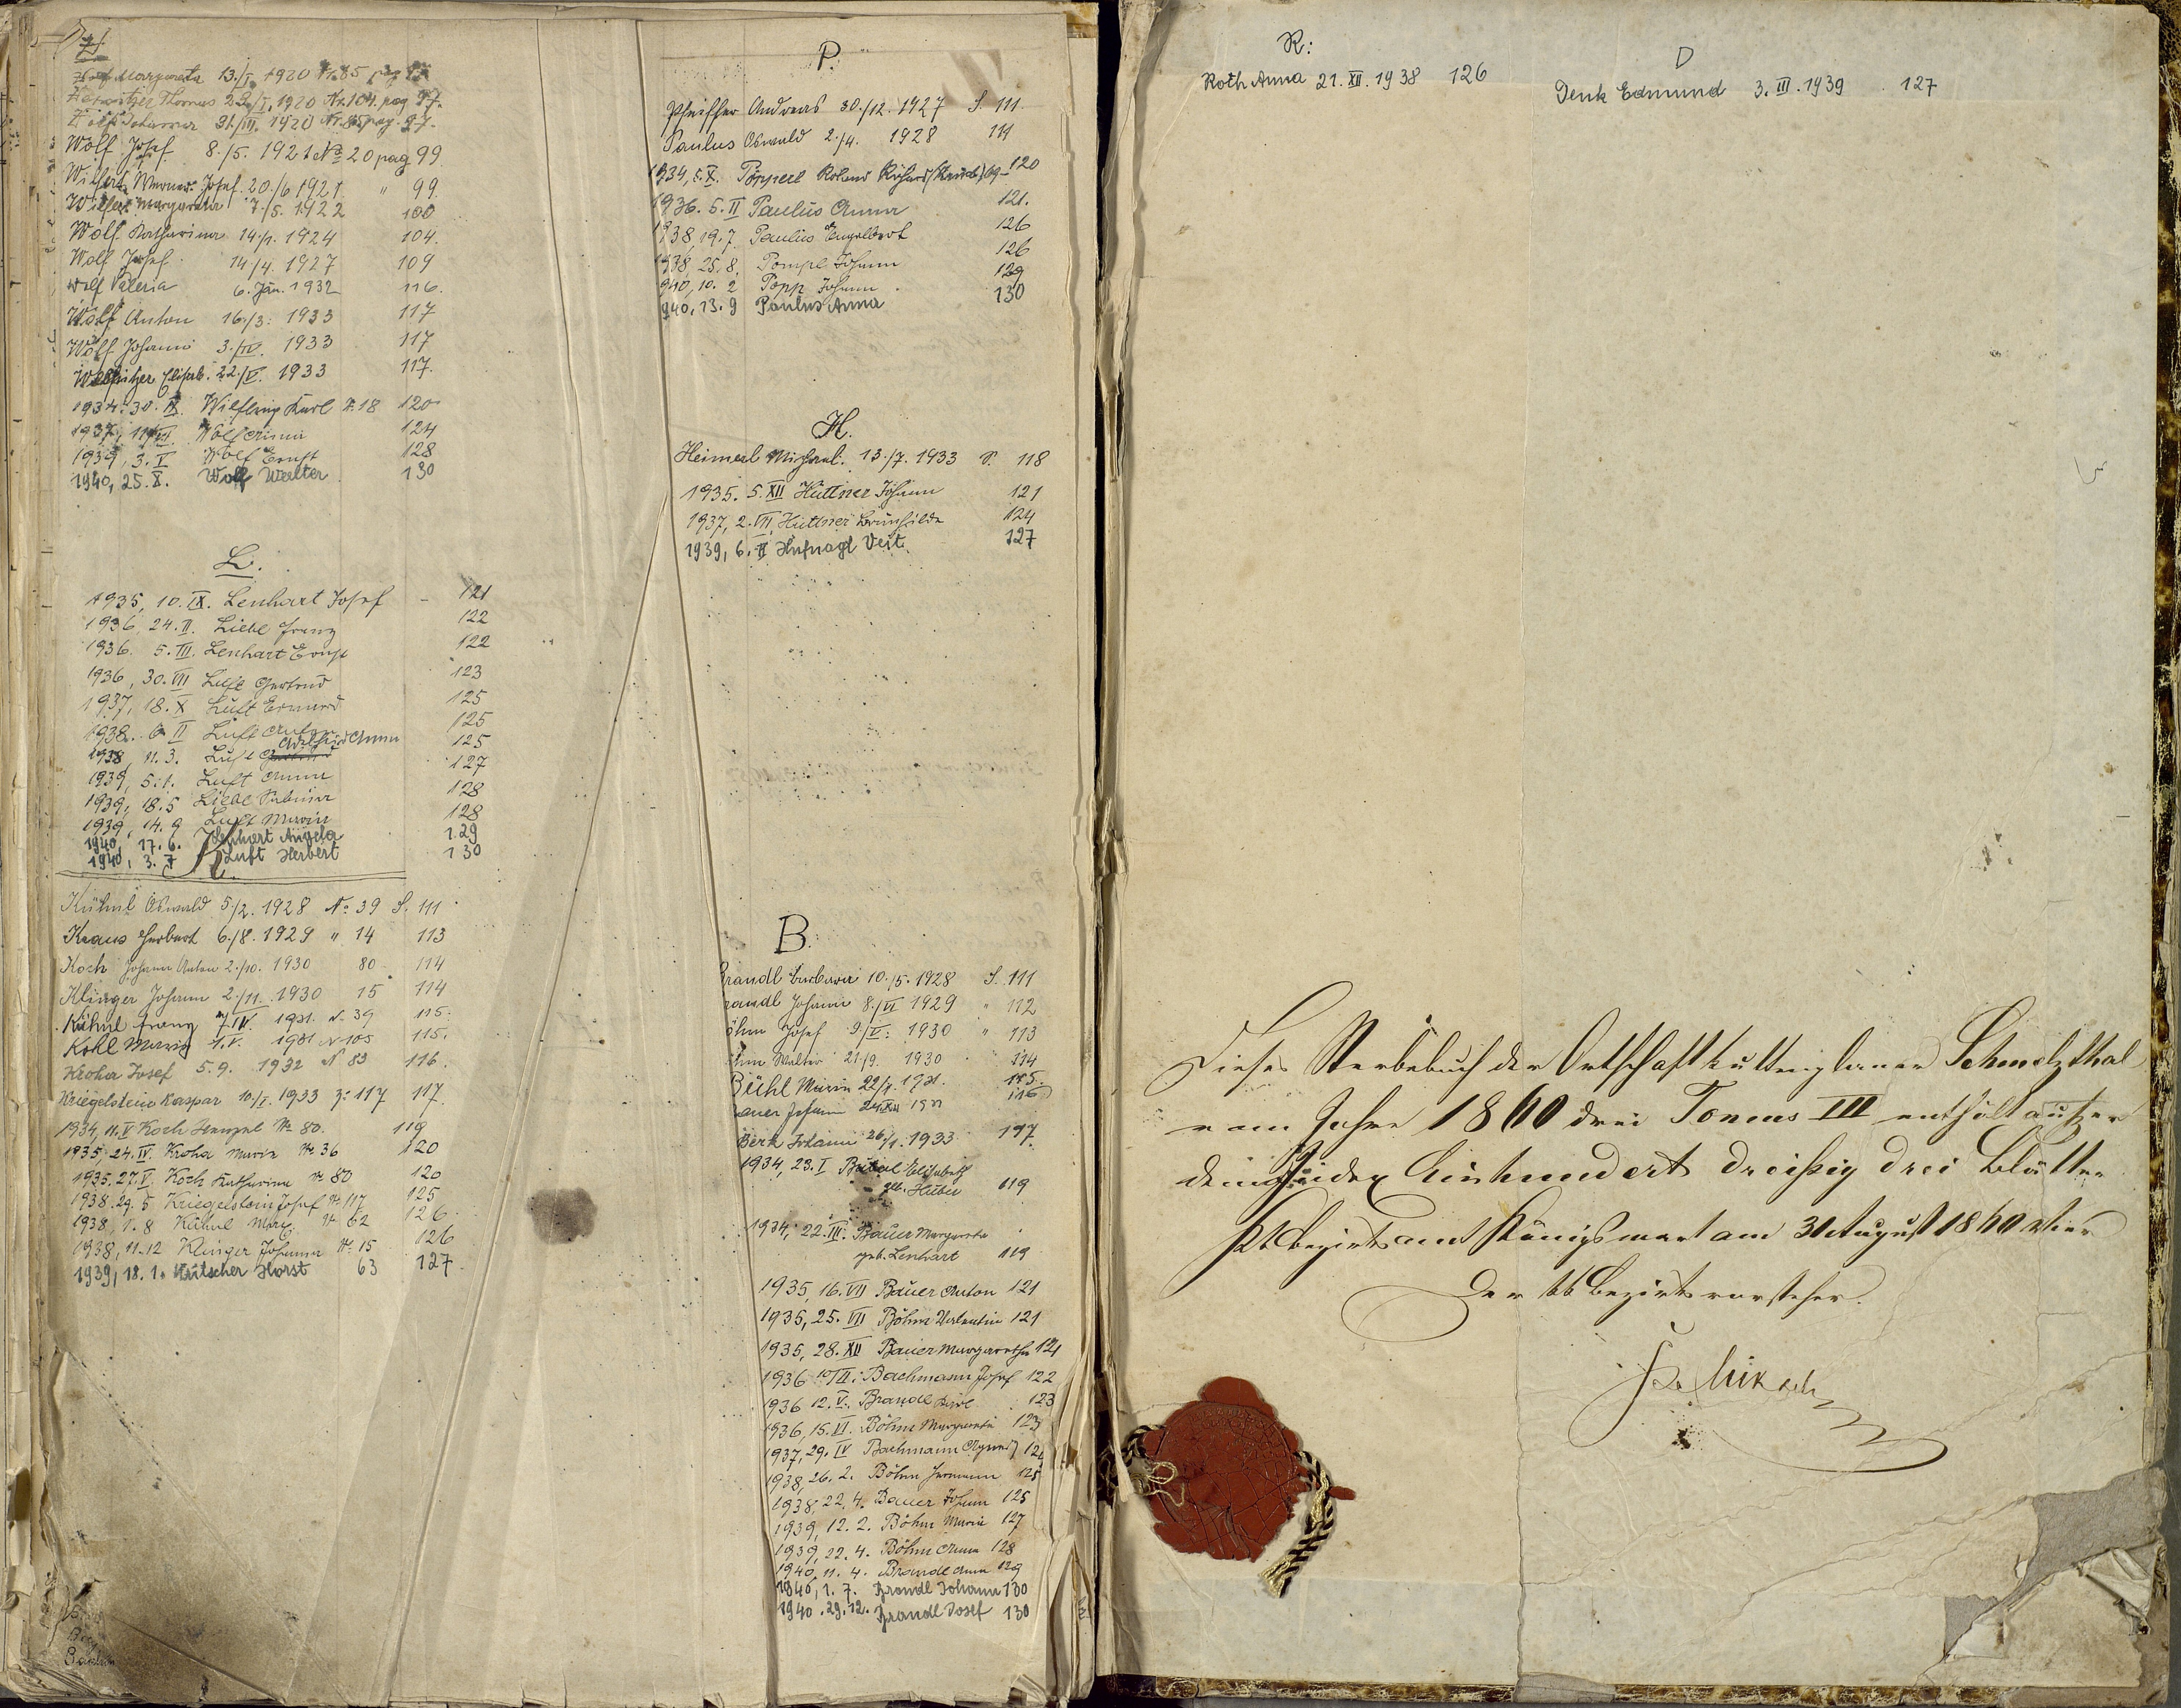 Wolf Margareta 13./I. 1920 Nr. 85 pag 97
Thomas 22./I. 1920 Nr. 104. pag 97.
Johanna 31./III. 1920 Nr. 85 pag. 97.
Wolf Josef 8./5. 1921 No 20 pag 99.
Wilfert Werner Josef. 20./6 1921. " 99.
Wilfert Margareta 7./5. 1922 100
Wolf Katharina 14./1. 1924 104.
Wolf Josef. 14/4. 1927 109
Wolf Valeria 6. Jän. 1932 116.
Wolf Anton 16./3. 1933 117
Wolf Johann 3./IV. 1933 117
Elisab. 22./V. 1933 117.
1934. 30. IX. Wilfling Karl No. 18 120
1937, 11/VI. Wolf Anna 124
1939, 3. V Wolf Ernst 128
1940, 25. X. Wolf Walter 130
L.
1935, 10. IX. Lenhart Josef - 121
1936 24. II. Liebl Franz 122
1936. 5. III. Lenhart Ernst 122
1936, 30. VII Gertrud 123
1937, 18. X Luft Edmund 125
1938. 6 II Luft Anton 125
Anna
1938, 11. 3. Luft 125
1939, 5. 1. Luft Anna 127
1939, 18. 5 Liebl Sabina 128
1939, 14. 9 Luft Maria 128
1940, 17. 6. Lenhart Angela 129
1940, 3. 7 Luft Herbert 130
K.
Kühnl Oswald 5./2. 1928 No. 39 S. 111
Kraus Herbert 6./8. 1929 " 14 113
Koch Johann Anton 2./10. 1930 80 - 114
Klinger Johann 2./11. 1930 15 114
Kühnl Franz 7./IV. 1931. N. 39 115.
Kohl Maria 1. V. 1931 N 105 115.
Kroha Josef 5. 9. 1932 N 83 116.
Kriegelstein Kaspar 10./I. 1933 Z: 117 117.
1934, 11. V Koch Wenzel No 80. 119
1935 24. IV. Kroha Maria No 36 120
1935. 27. V. Koch Katharina No 80 120
1938. 29. 5 Kriegelstein Josef No 117 125
1938, 1. 8 Kühnl Marg. No 62 126.
1938, 11. 12 Klinger Johanna No. 15 126
1939, 18. 1. Kutscher Horst 63 127.
P.
Pfeiffer Andreas 30./12. 1927 S. 111.
Paulus Oswald 2./4. 1928 111
1934, 5. X. Pöpperl Roland Richard 120
1936. 5. II Paulus Anna 121.
1938, 19. 7. Paulus Engelbert 126
1938, 25. 8. Pompl Johann 126
940, 10. 2 Popp Johann. 129
940, 13. 9 Paulus Anna 130
H.
Heimerl Michael. 13./7. 1933 S. 118
1935. 5. XII Hüttner Johann 121
1937, 2. VII. Hüttner Brunhilde 124
1939, 6. II Hufnagl Veit. 127
B.
Brandl Barbara 10./5. 1928 S. 111
randl Johann 8./VI 1929 " 112
öhm Josef 9/V. 1930 " 113
öhm Walter 21./9. 1930 114
Bichl Maria 22/1. 1931. 115.
auer Johann 24. XII 1931 116
Berk Johann 26./1. 1933 117.
1934, 23. I Elisabeth
geb. Huber 119
1934, 22. III. Bauer Margareta
geb. Lenhart 119
1935, 16. VII Bauer Anton 121
1935, 25. VII Böhm Valentin 121
1935, 28. XII Bauer Margaretha 121
1936 10/II. Bachmann Josef 122
1936 12. V. Brandl Karl 123
1936, 15. VI. Böhm Margareta 123
1937, 29. IV Bachmann 124
1938, 26. 2. Böhm Hermann 125
1938 22. 4. Bauer Johann 125
1939, 12. 2. Böhm Maria 127
1939, 22. 4. Böhm Anna 128
1940, 11. 4. Brandl Anna 129
1940, 1. 7. Brandl Johann 130
1940. 29. 12. Brandl Josef 130
R:
Roth Anna 21. XII. 1938 126
D
Denk Edmund 3. III. 1939 127
Dieses Sterbebuch der Ortschaft Schmelzthal
vom Jahre 1860 drei Tomus III enthält außer
dem Index Einhundert dreißig drei Blätter
kk Bezirksamt Königswart am 31 August 1860 vier
Der kk Bezirksvorsteher.